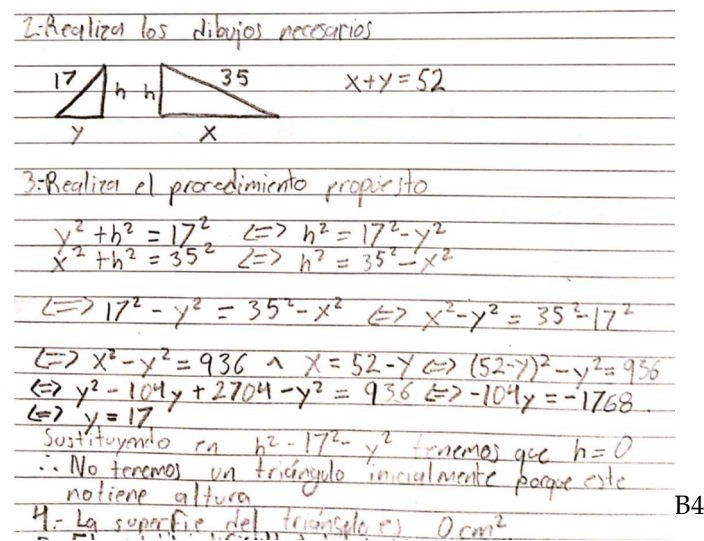 2:-Realiza los dibujos necesarios
17 h h 35 x+y=52
y x
3:-Realiza el procedimiento propuesto
y² + h² = 17² <=> h² = 17² - y²
x² + h² = 35² <=> h² = 35² - x²
<=> 17² - y² = 35² - x² <=> x² - y² = 35² - 17²
<=> x² - y² = 936 ∧ x = 52 - y <=> (52-y)² - y² = 936
<=> y² - 104y + 2704 - y² = 936 <=> -104y = -1768.
<=> y = 17
Sustituyendo en h² - 17² - y² tenemos que h = 0
∴ No tenemos un triángulo inicialmente porque este
no tiene altura
4.- La superfie del triángulo es 0 cm²
B4